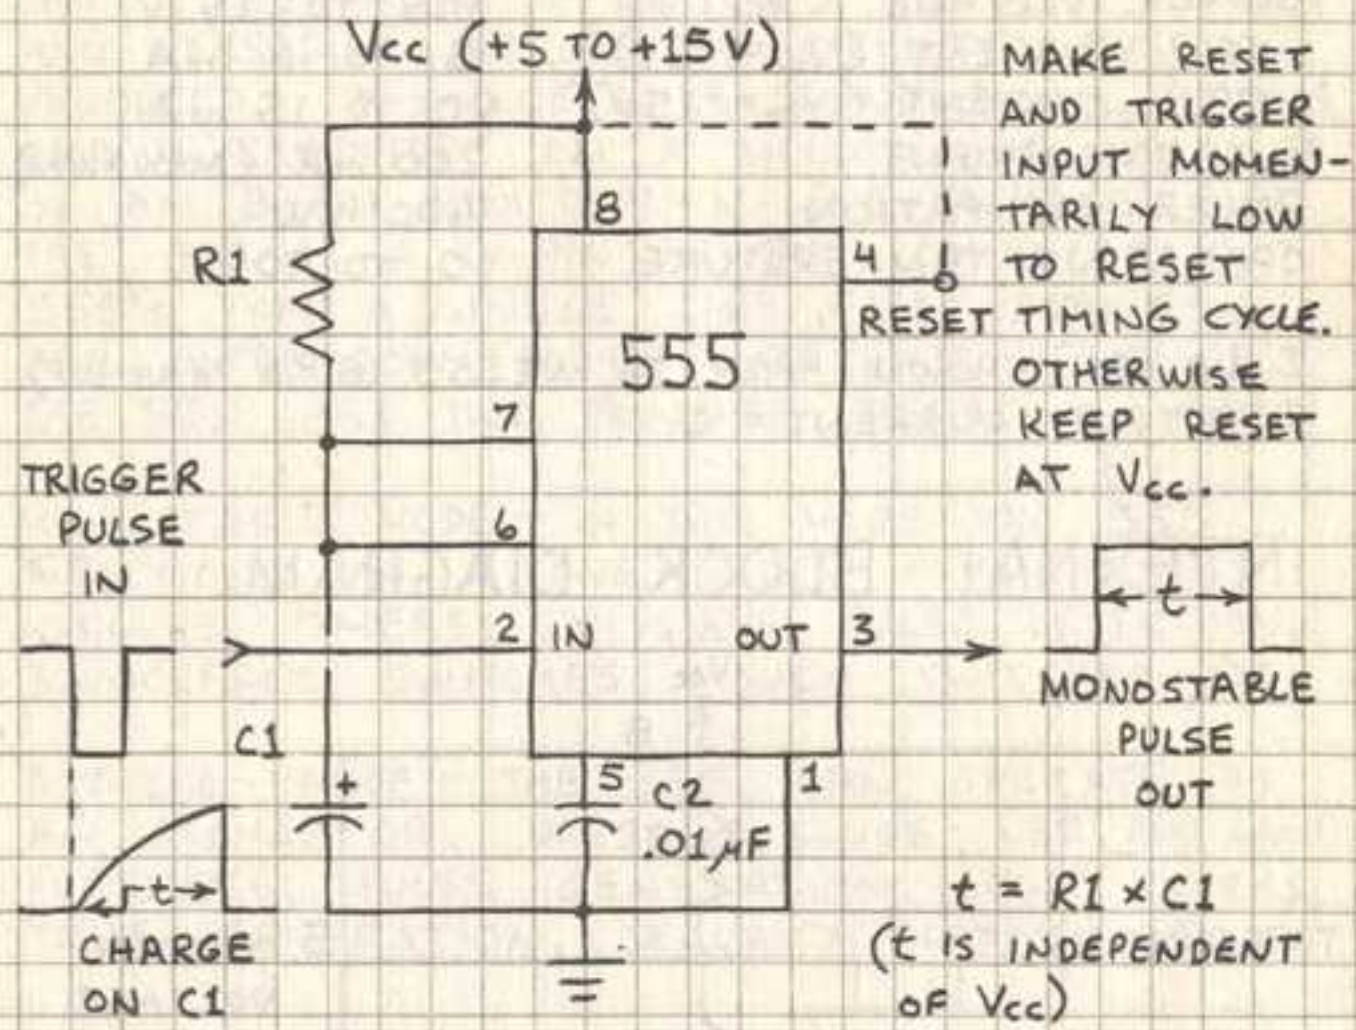 Vcc (+5 TO +15V)
MAKE RESET
AND TRIGGER
INPUT MOMEN-
TARILY LOW
TO RESET
TIMING CYCLE.
OTHERWISE
KEEP RESET
AT Vcc.
8
R1
4
RESET
555
7
TRIGGER
PULSE
IN
6
2
IN
OUT
3
t
MONOSTABLE
PULSE
OUT
C1
+
5
C2
.01µF
1
t
CHARGE
ON C1
t = R1 × C1
(t IS INDEPENDENT
OF Vcc)